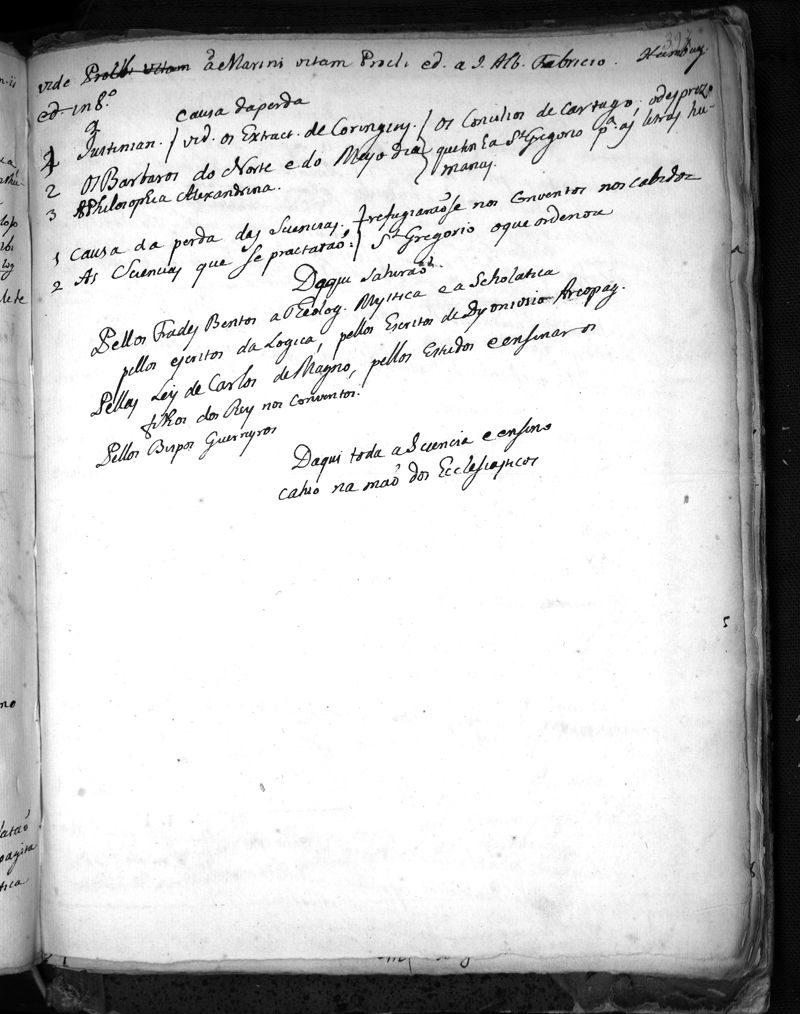 vide Procli vitam à Marini vitam Procli ed. a J. Alb. Fabricio. Hamburg.
ed. in 8.º
causa da perda
1 Justinian. / vid. os Extract. de Coringius. / os Concilios de Cartago, o desprezo
2 Os Barbaros do Norte e do Meyo dia que tinha Sto. Gregorio pa. as letras hu-
manas.
3 A Philosophia Alexandrina.
1 Causa da perda das Sciencias. refugiaraõse nos conventos nos cabidos
2 As Sciencias que se practaraõ: Sto. Gregorio o que ordenou
Daqui sahiraõ.
Pellos Frades Bentos a Theolog. Mystica e a Scholatica
pellos escritos da Logica, pellos Escritos de Dyonisio Areopag.
Pellas Ley de Carlos de Magno, pellos Estudos e ensinar os
filhos dos Rey nos conventos.
Pellos Bispos Guerreyros
Daqui toda a Sciencia e ensino
cahio na maõ dos Ecclesiasticos